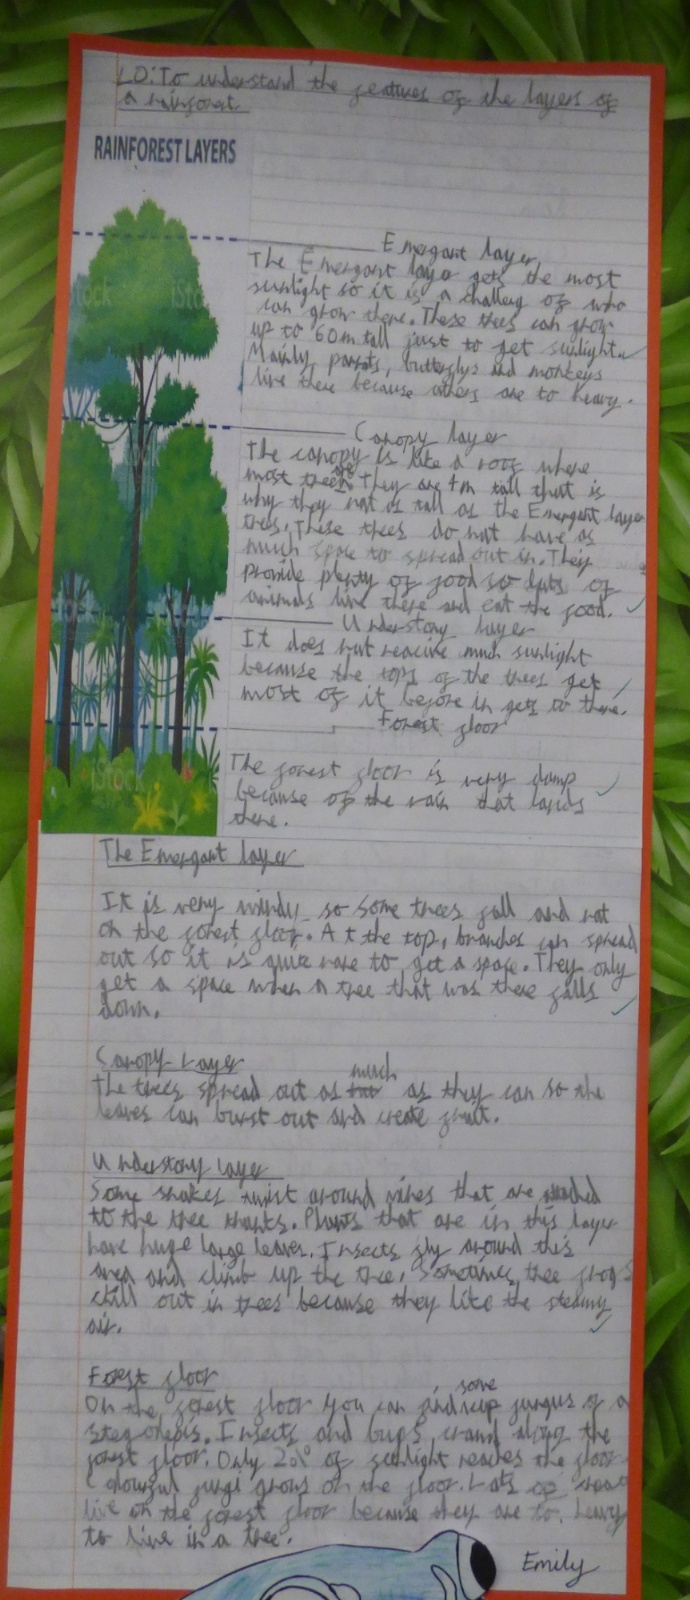 LO: To understand the features of the layers of
a rainforest.
RAINFOREST LAYERS
Emergant layer
The Emergant layer gets the most
sunlight so it is a challeng of who
can grow there. These trees can grow
up to 60m tall just to get sunlight.
Mainly, parrots, butterflys and monkeys
live there because others are to heavy.
Canopy layer
The canopy is like a roof where
most trees are. They are 4m tall that is
why they not as tall as the Emergant layer
trees. These trees do not have as
much space to spread out in. They
provide plenty of food so lots of
animals live there and eat the food.
Understory layer
It does not reacive much sunlight
because the tops of the trees get
most of it before in gets to there.
Forest floor
The forest floor is very damp
because of the rain that lands
there.
iStock
iStock
iStock
The Emergant layer
It is very windy so some trees fall and rot
on the forest floor. At the top, branches can spread
out so it is quit rare to get a space. They only
get a space when a tree that was there falls
down.
Canopy Layer
The trees spread out as much as they can so the
leaves can burst out and create fruit.
Understory layer
Some snakes twist around vines that are attached
to the tree trunks. Plants that are in this layer
have huge large leaves. Insects fly around this
area and climb up the tree. Sometimes tree frogs
chill out in trees because they like the steamy
air.
Forest floor
On the forest floor you can find some fungus of a
Insects and bugs crawl along the
forest floor. Only 20% of sunlight reaches the floor
Colourful fungi grows on the floor. Lots of
live on the forest floor because they are to heavy
to live in a tree.
Emily